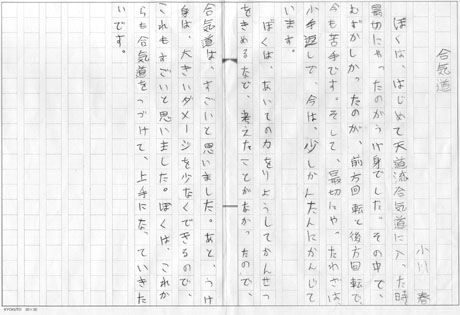 合気道
小川 春
ぼくは、はじめて天道流合気道に入った時
最切にやったのがうけ身でした。その中で、
むずかしかったのが、前方回転と後方回転で、
今も苦手です。そして、最切にや、たわざは、
小手返しで、今は、少しかんたんにかんじて
います。
ぼくは、あいての力をりようしてかんせつ
をきめるなで、考えたことがなかったので、
合気道は、すごいと思いました。あと、うけ
身は、大きいダメージを少なくできるので、
これもすごいと思いました。ぼくは、これか
らも合気道をつづけて、上手になっていきた
いです。
KYOKUTO 20×20